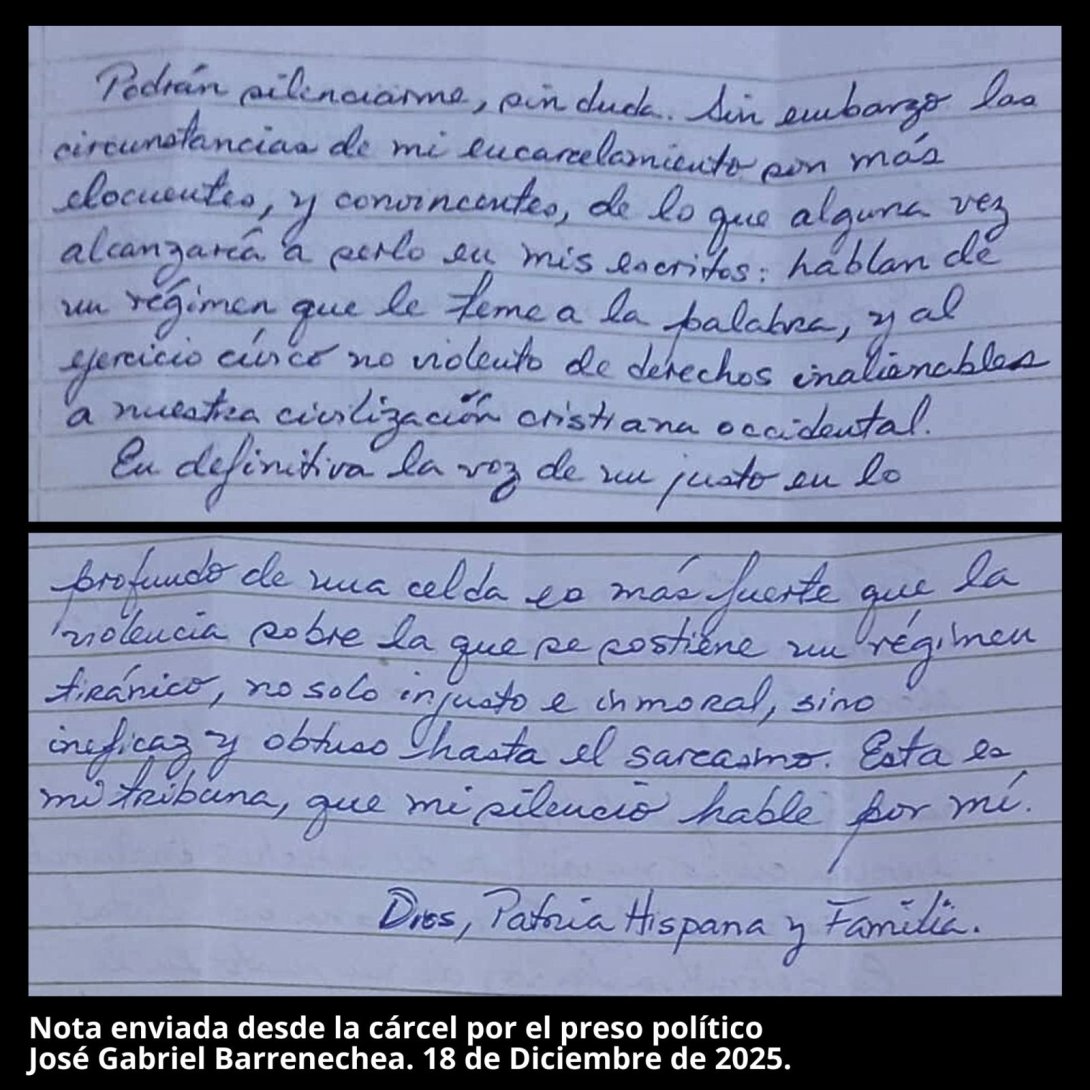 Podrán silenciarme, sin duda. Sin embargo las
circunstancias de mi encarcelamiento son más
elocuentes, y convincentes, de lo que alguna vez
alcanzaría a serlo en mis escritos: hablan de
un régimen que le teme a la palabra, y al
ejercicio cívico no violento de derechos inalienables
a nuestra civilización cristiana occidental.
En definitiva la voz de un justo en lo
profundo de una celda es más fuerte que la
violencia sobre la que se sostiene un régimen
tiránico, no solo injusto e inmoral, sino
ineficaz y obtuso hasta el sarcasmo. Esta es
mi tribuna, que mi silencio hable por mí.
Dios, Patria Hispana y Familia.
Nota enviada desde la cárcel por el preso político
José Gabriel Barrenechea. 18 de Diciembre de 2025.